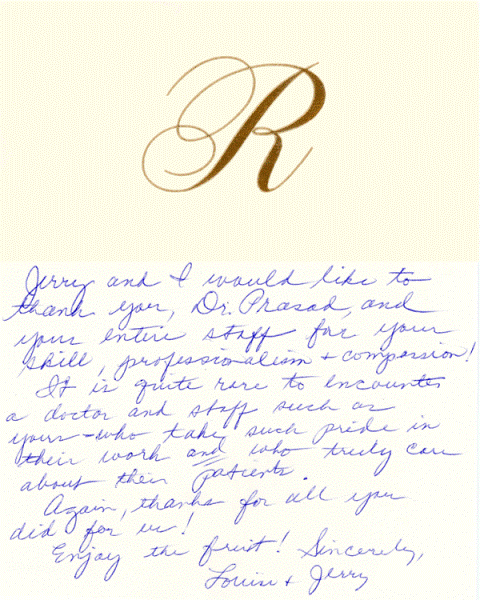 R
Jerry and I would like to
thank you, Dr. Prasad, and
your entire staff for your
skill, professionalism + compassion!
It is quite rare to encounter
a doctor and staff such as
yours - who take such pride in
their work and who truly care
about their patients.
Again, thanks for all you
did for us!
Enjoy the fruit! Sincerely,
Louise + Jerry